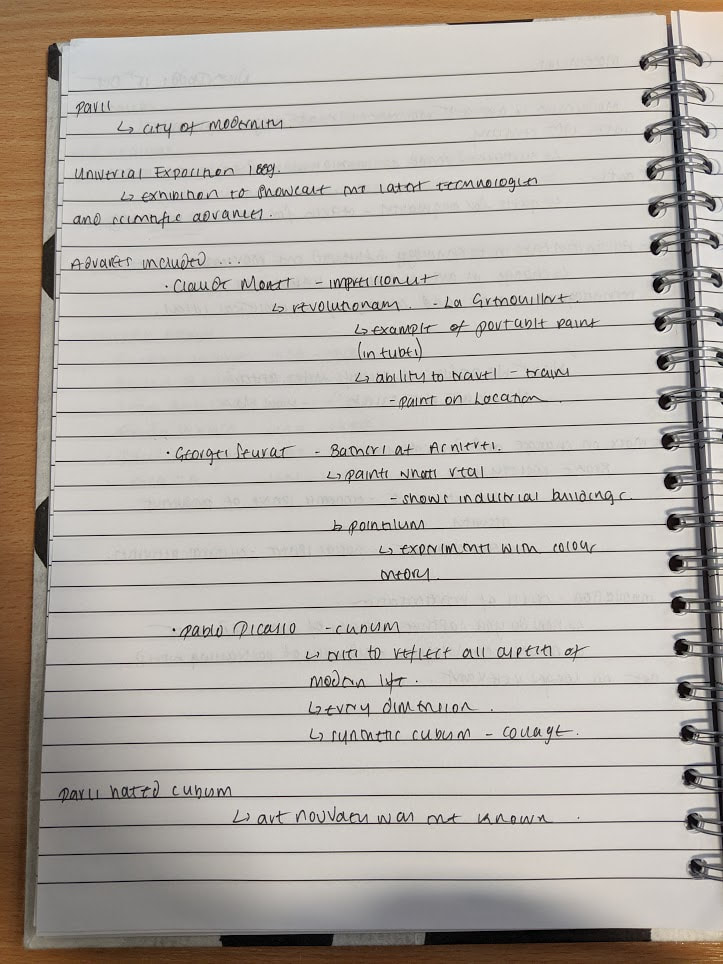 Paris
↳ city of modernity.
Universal Exposition 1889.
↳ exhibition to showcase the latest technologies
and scientific advances.
Advances included ...
· Claude Monet - impressionist
↳ revolutionary. - La Grenouillere
↳ example of portable paint
(in tubes)
↳ ability to travel - trains
- paint on location.
· Georges Seurat - Bathers at Asnieres.
↳ paints whats real
- shows industrial buildings.
↳ pointilism
↳ experiments with colour
theory.
· Pablo Picasso - cubism
↳ tries to reflect all aspects of
modern life.
↳ every dimension.
↳ synthetic cubism - collage.
Paris hated cubism
↳ art nouvaeu was the known.